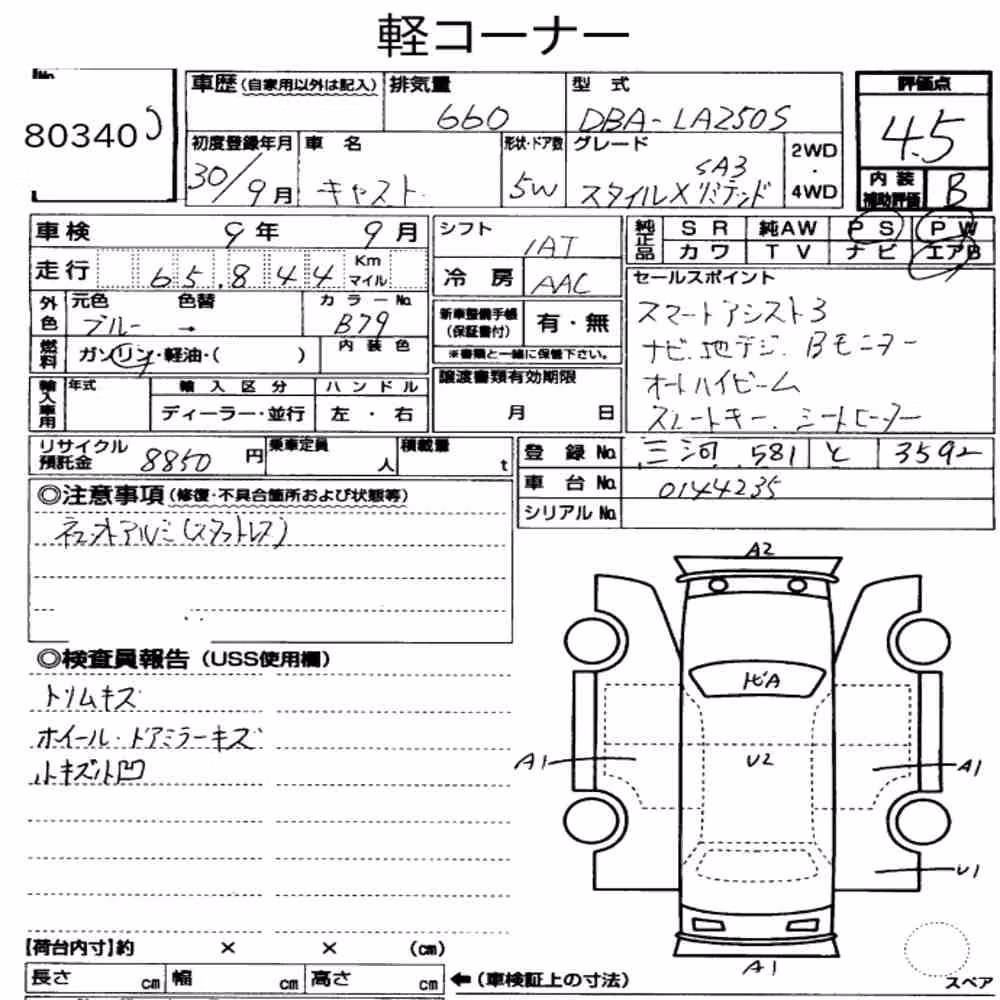 軽コーナー
No.
80340
車歴(自家用以外は記入)
排気量
660
型 式
DBA-LA250S
評価点
4.5
初度登録年月
30/9月
車 名
キャスト
形状・ドア数
5W
グレード
SA3
スタイルXリミテッド
2WD
・
4WD
内 装
補助評価
B
車検
9年 9月
走行
65,844
Km
マイル
シフト
IAT
冷 房
AAC
純正品
SR 純AW PS PW
カワ TV ナビ エアB
セールスポイント
スマートアシスト3
ナビ.地デジ.Bモニター
オートハイビーム
スマートキー.シートヒーター
外色
元色 色替
ブルー →
カラーNo.
B79
燃料
ガソリン・軽油・( )
内装色
新車整備手帳
(保証書付)
有・無
※書類と一緒に保管下さい。
輸入車用
年式
輸入区分
ディーラー・並行
ハンドル
左・右
譲渡書類有効期限
月 日
リサイクル
預託金
8850円
乗車定員
人
積載量
t
登 録 No.
三河 581 と 3592
車 台 No.
0144235
シリアル No.
◎注意事項(修復・不具合箇所および状態等)
社外アルミ(スタットレス)
◎検査員報告(USS使用欄)
トリムキズ
ホイール・ドアミラーキズ
小キズ小凹
A2
トビA
A1
U2
A1
U1
A1
スペア
【荷台内寸】約 × × (cm)
長さ cm 幅 cm 高さ cm
←(車検証上の寸法)